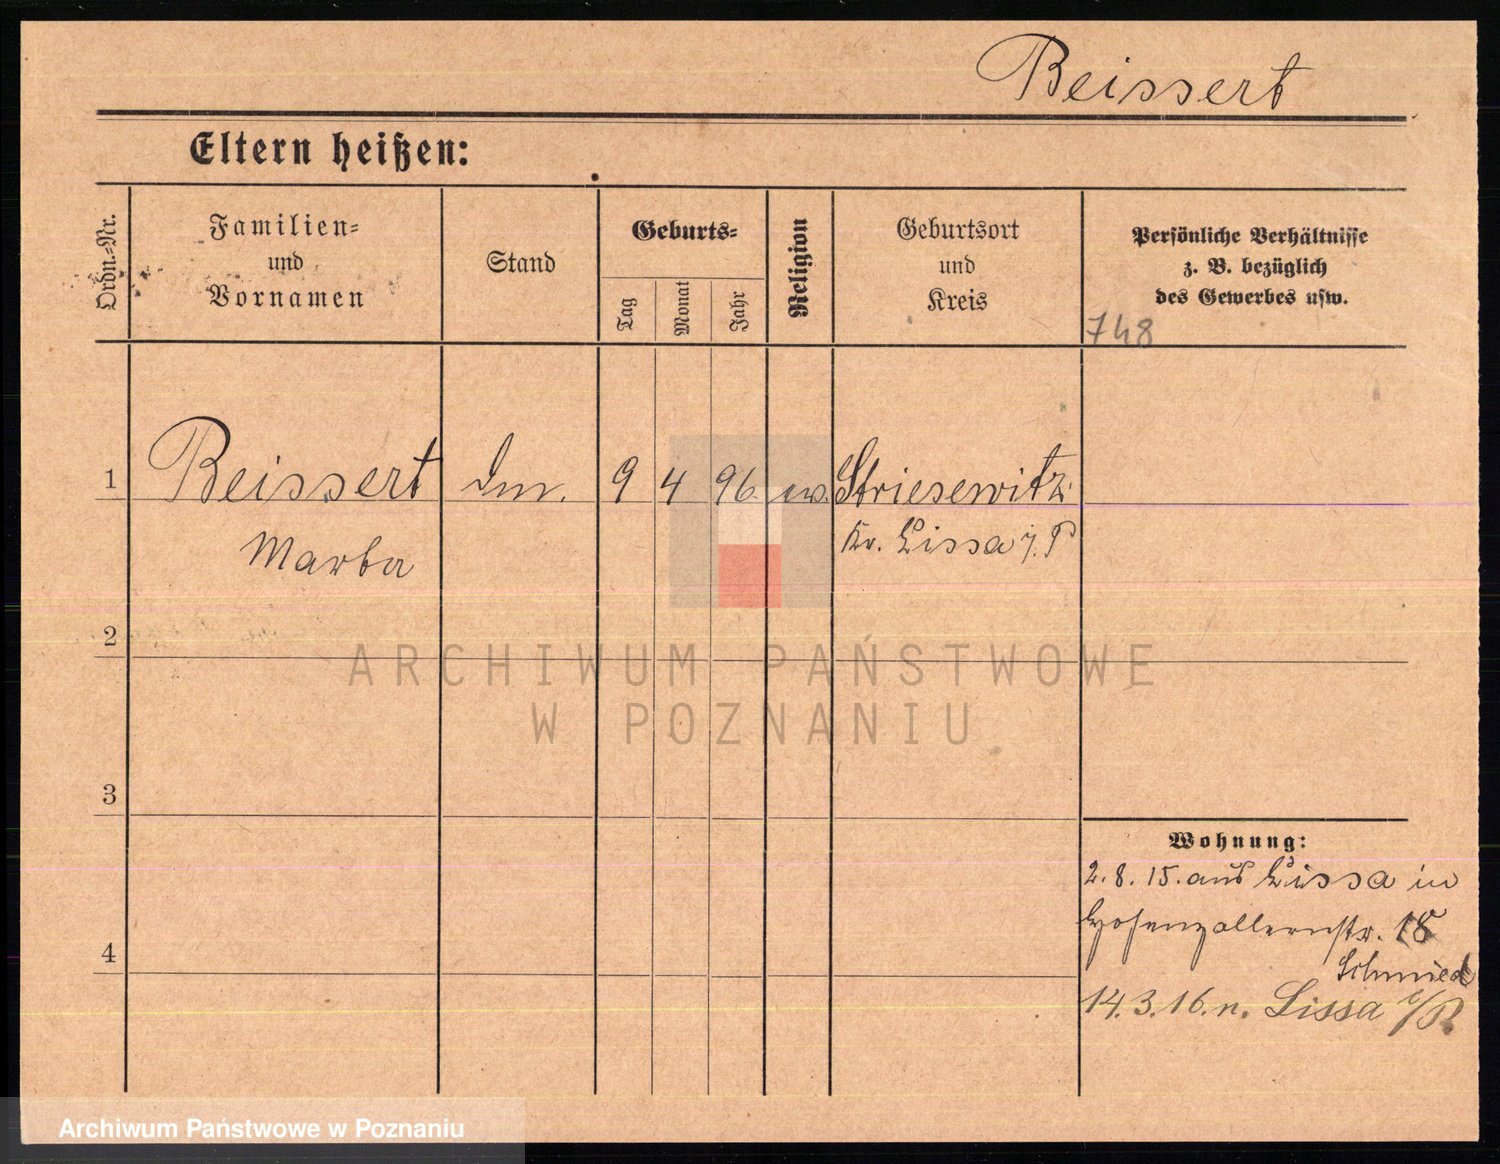 Beissert
Eltern heißen:
Ordn.-Nr.
Familien-
und
Vornamen
Stand
Geburts-
Tag
Monat
Jahr
Religion
Geburtsort
und
Kreis
Persönliche Verhältnisse
z. B. bezüglich
des Gewerbes usw.
748
1
Beissert
9 4 96. ev. Striesewitz
Kr. Lissa i. P
Martha
2
ARCHIWUM PAŃSTWOWE
W POZNANIU
3
Wohnung:
2. 8. 15. aus Lissa in
Hohenzollernstr. 18
Schmied
4
14. 3. 16. n. Lissa i/P.
Archiwum Państwowe w Poznaniu